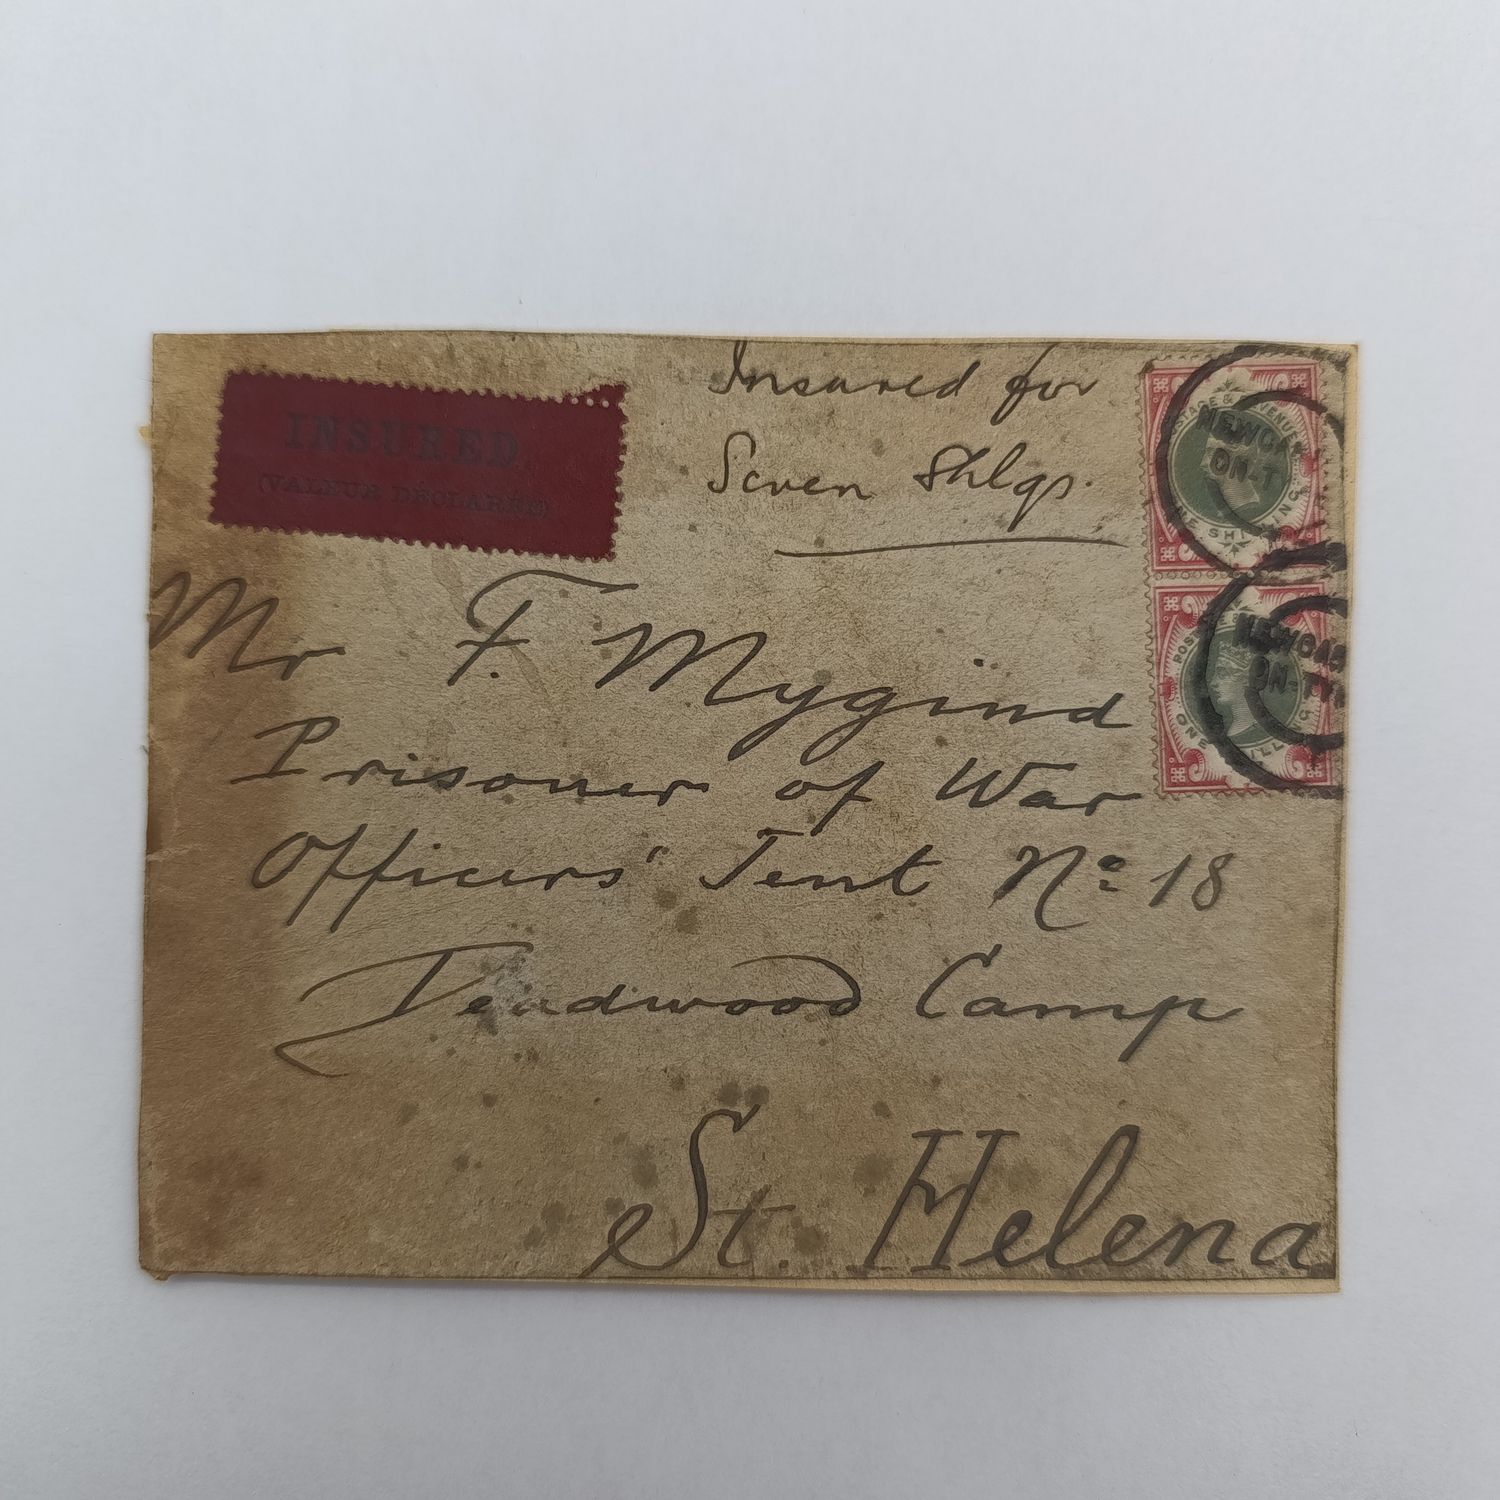 INSURED
(VALEUR DÉCLARÉE)
Insured for
Seven Shlgs.
POSTAGE & REVENUE
ONE SHILLING
NEWCA
ON-T
POST
ONE SHILLING
NEWCAS
ON-TY
Mr F. Mygind
Prisoner of War
Officers' Tent No 18
Deadwood Camp
St. Helena